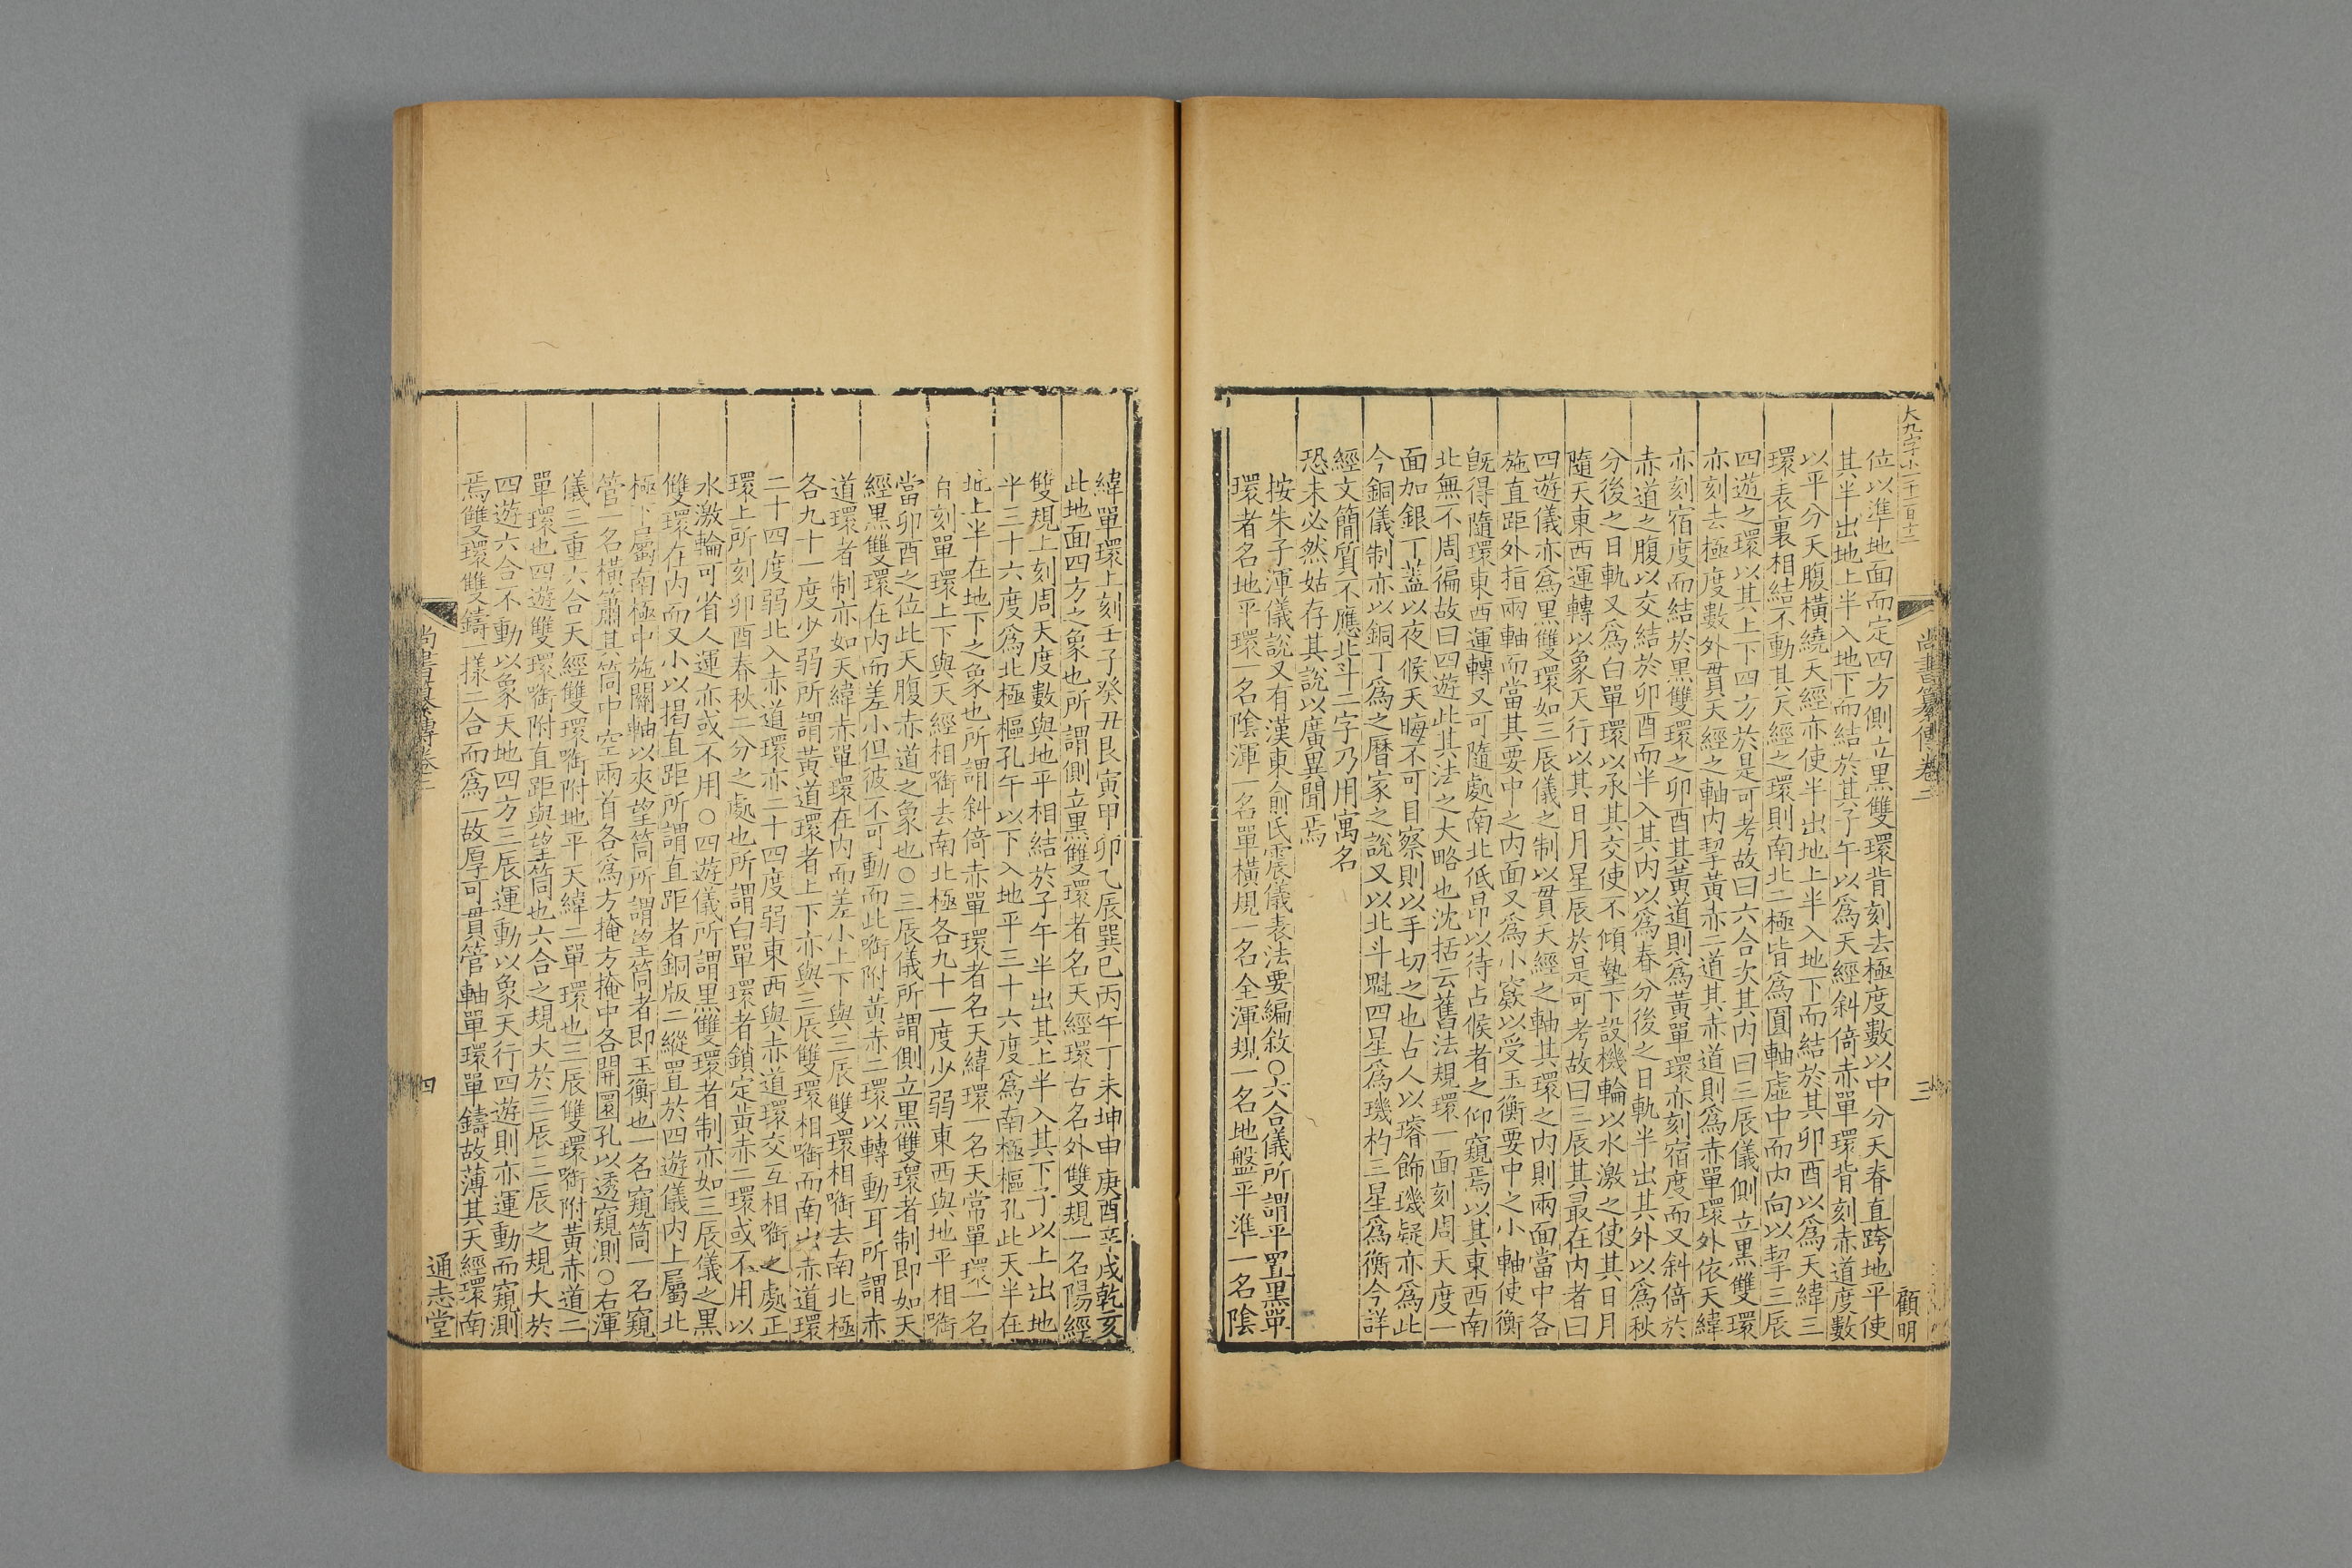 大九字小一千二百十三
尚書纂傳卷二
三
顧明
位以準地面而定四方側立黑雙環背刻去極度數以中分天脊直跨地平使
其半出地上半入地下而結於其子午以為天經斜倚赤單環背刻赤道度數
以平分天腹橫繞天經亦使半出地上半入地下而結於其卯酉以為天緯三
環表裏相結不動其天經之環則南北二極皆為圓軸虛中而內向以挈三辰
四遊之環以其上下四方於是可考故曰六合次其內曰三辰儀側立黑雙環
亦刻去極度數外貫天經之軸內挈黃赤二道其赤道則為赤單環外依天緯
亦刻宿度而結於黑雙環之卯酉其黃道則為黃單環亦刻宿度而又斜倚於
赤道之腹以交結於卯酉而半入其內以為春分後之日軌半出其外以為秋
分後之日軌又為白單環以承其交使不傾墊下設機輪以水激之使其日月
隨天東西運轉以象天行以其日月星辰於是可考故曰三辰其最在內者曰
四遊儀亦為黑雙環如三辰儀之制以貫天經之軸其環之內則兩面當中各
施直距外指兩軸而當其要中之內面又為小窽以受玉衡要中之小軸使衡
旣得隨環東西運轉又可隨處南北低昂以待占候者之仰窺焉以其東西南
北無不周徧故曰四遊此其法之大略也沈括云舊法規環一面刻周天度一
面加銀丁葢以夜候天晦不可目察則以手切之也占人以璿飾璣疑亦為此
今銅儀制亦以銅丁為之曆家之說又以北斗魁四星為璣杓三星為衡今詳
經文簡質不應北斗二字乃用寓名
恐未必然姑存其說以廣異聞焉
按朱子渾儀說又有漢東俞氏震儀表法要編敘○六合儀所謂平置黑單
環者名地平環一名陰渾一名單橫規一名全渾規一名地盤平準一名陰
緯單環上刻壬子癸丑艮寅甲卯乙辰巽巳丙午丁未坤申庚酉辛戌乾亥
此地面四方之象也所謂側立黑雙環者名天經環古名外雙規一名陽經
雙規上刻周天度數與地平相結於子午半出其上半入其下子以上出地
平三十六度爲北極樞孔午以下入地平三十六度爲南極樞孔此天半在
地上半在地下之象也所謂斜倚赤單環者名天緯環一名天常單環一名
百刻單環上下與天經相銜去南北極各九十一度少弱東西與地平相銜
當卯酉之位此天腹赤道之象也○三辰儀所謂側立黑雙環者制卽如天
經黑雙環在內而差小但彼不可動而此銜附黃赤二環以轉動耳所謂赤
道環者制亦如天緯赤單環在內而差小上下與三辰雙環相銜去南北極
各九十一度少弱所謂黃道環者上下亦與三辰雙環相銜而南出赤道環
二十四度弱北入赤道環亦二十四度弱東西與赤道環交互相銜之處正
環上所刻卯酉春秋二分之處也所謂白單環者鎖定黃赤二環或不用以
水激輪可省人運亦或不用○四遊儀所謂黑雙環者制亦如三辰儀之黑
雙環在內而又小以揭直距所謂直距者銅版二縱置於四遊儀內上屬北
極下屬南極中施關軸以夾望筒所謂望筒者卽玉衡也一名窺筒一名窺
管一名橫簫其筒中空兩首各爲方掩方掩中各開圜孔以透窺測○右渾
儀三重六合天經雙環銜附地平天緯二單環也三辰雙環銜附黃赤道二
單環也四遊雙環銜附直距與望筒也六合之規大於三辰三辰之規大於
四遊六合不動以象天地四方三辰運動以象天行四遊則亦運動而窺測
焉雙環雙鑄一樣二合而爲一故厚可貫管軸單環單鑄故薄其天經環南
尚書纂傳卷二
四
通志堂